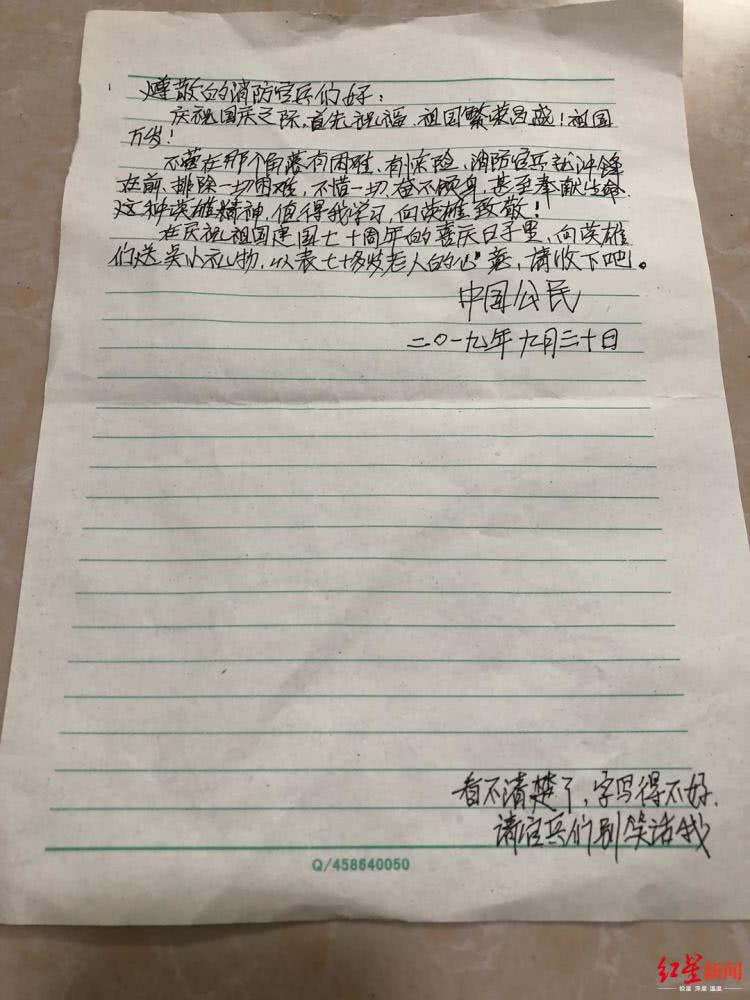 尊敬的消防官兵们好：
庆祝国庆之际，首先祝福，祖国繁荣昌盛！祖国
万岁！
不管在那个角落有困难，有惊险，消防官兵就冲锋
在前，排除一切困难，不惜一切，奋不顾身，甚至奉献生命。
这种英雄精神，值得我学习，向英雄致敬！
在庆祝祖国建国七十周年的喜庆日子里，向英雄
们送点小礼物，以表七十多岁老人的心意，请收下吧。
中国公民
二〇一九年九月三十日
看不清楚了，字写得不好，
请官兵们别笑话我
Q/458640050
红星新闻